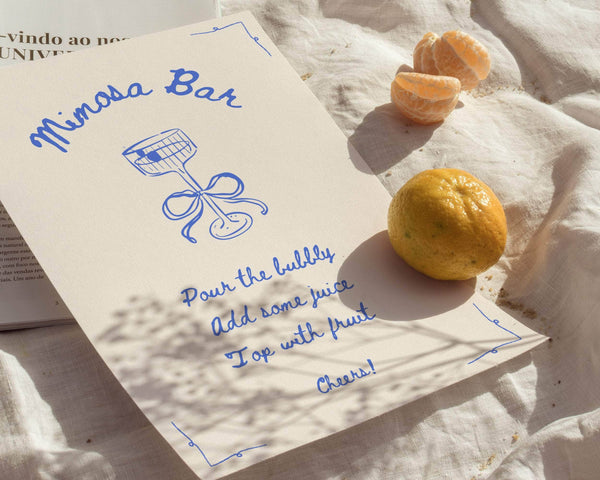 -vindo ao nos
UNIVE
Mimosa Bar
Pour the bubbly
Add some juice
Top with fruit
Cheers!